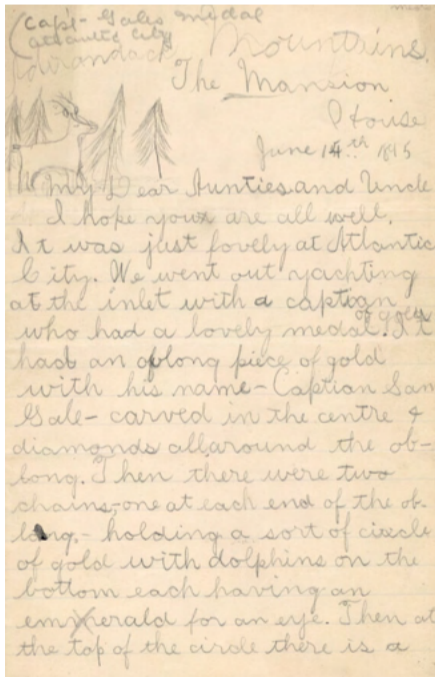 (Capt- Gales medal
Atlantic City
Adirondack Mountins.
The Mansion
House
June 14th 1895
My Dear Aunties and Uncle
I hope your are all well.
It was just lovely at Atlantic
City. We went out yachting
at the inlet with a captian
who had a lovely medal of gold. It
had an oblong piece of gold
with his name - Captian Sam
Gale - carved in the centre &
diamonds all around the ob-
long. Then there were two
chains, - one at each end of the ob-
long, - holding a sort of circle
of gold with dolphins on the
bottom each having an
emerald for an eye. Then at
the top of the circle there is a